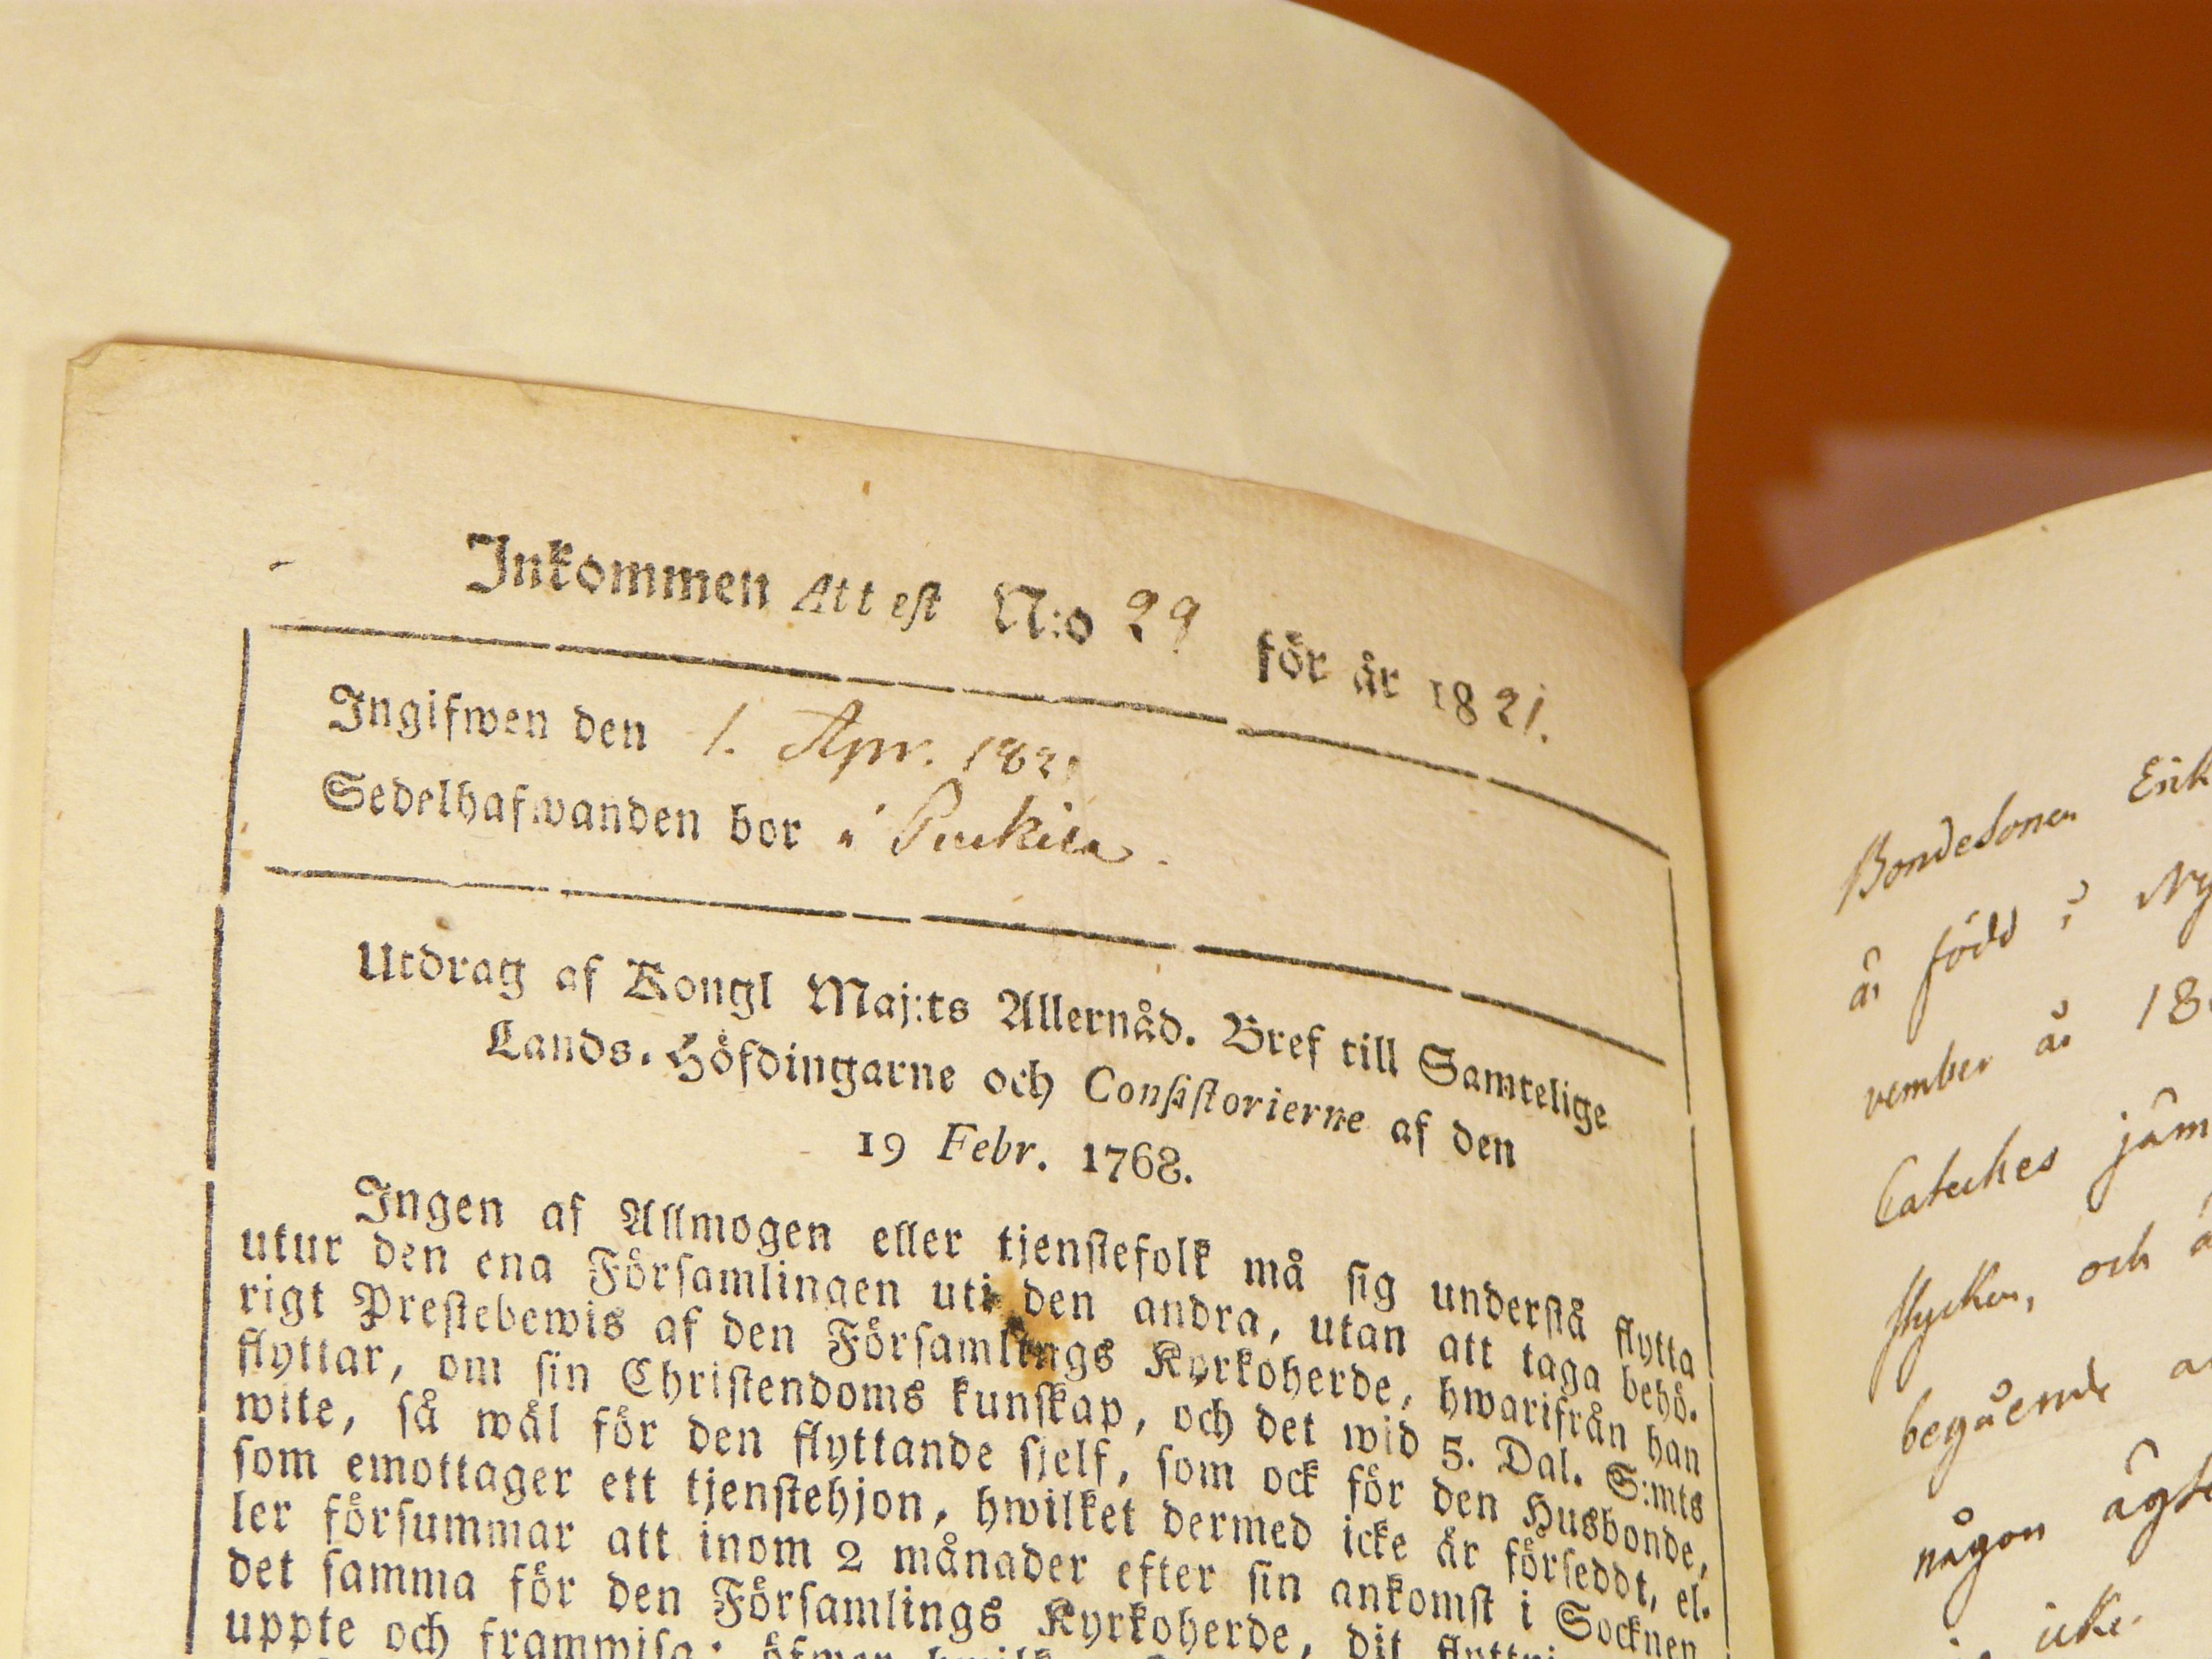 Inkommen Attest N:o 29 för år 1821.
Ingifwen den 1. Apr. 1821
Sedelhafwanden bor i
Utdrag af Kongl Maj:ts Allernåd. Bref till Samtelige
Lands-Höfdingarne och Consistorierne af den
19 Febr. 1768.
Ingen af Allmogen eller tjenstefolk må sig understå flytta
utur den ena Församlingen uti den andra, utan att taga behö-
rigt Prestebewis af den Församlings Kyrkoherde, hwarifrån han
flyttar, om sin Christendoms kunskap, och det wid 5. Dal. S:mts
wite, så wäl för den flyttande sjelf, som ock för den Husbonde,
som emottager ett tjenstehjon, hwilket dermed icke är förseddt, el-
ler försummar att inom 2 månader efter sin ankomst i Socknen
det samma för den Församlings Kyrkoherde, dit
uppte och framwisa; öfwer
Bondesonen Erik
är född i Ny
vember år 18
Cateches jäm
stycken, och
begående
någon ägt
icke